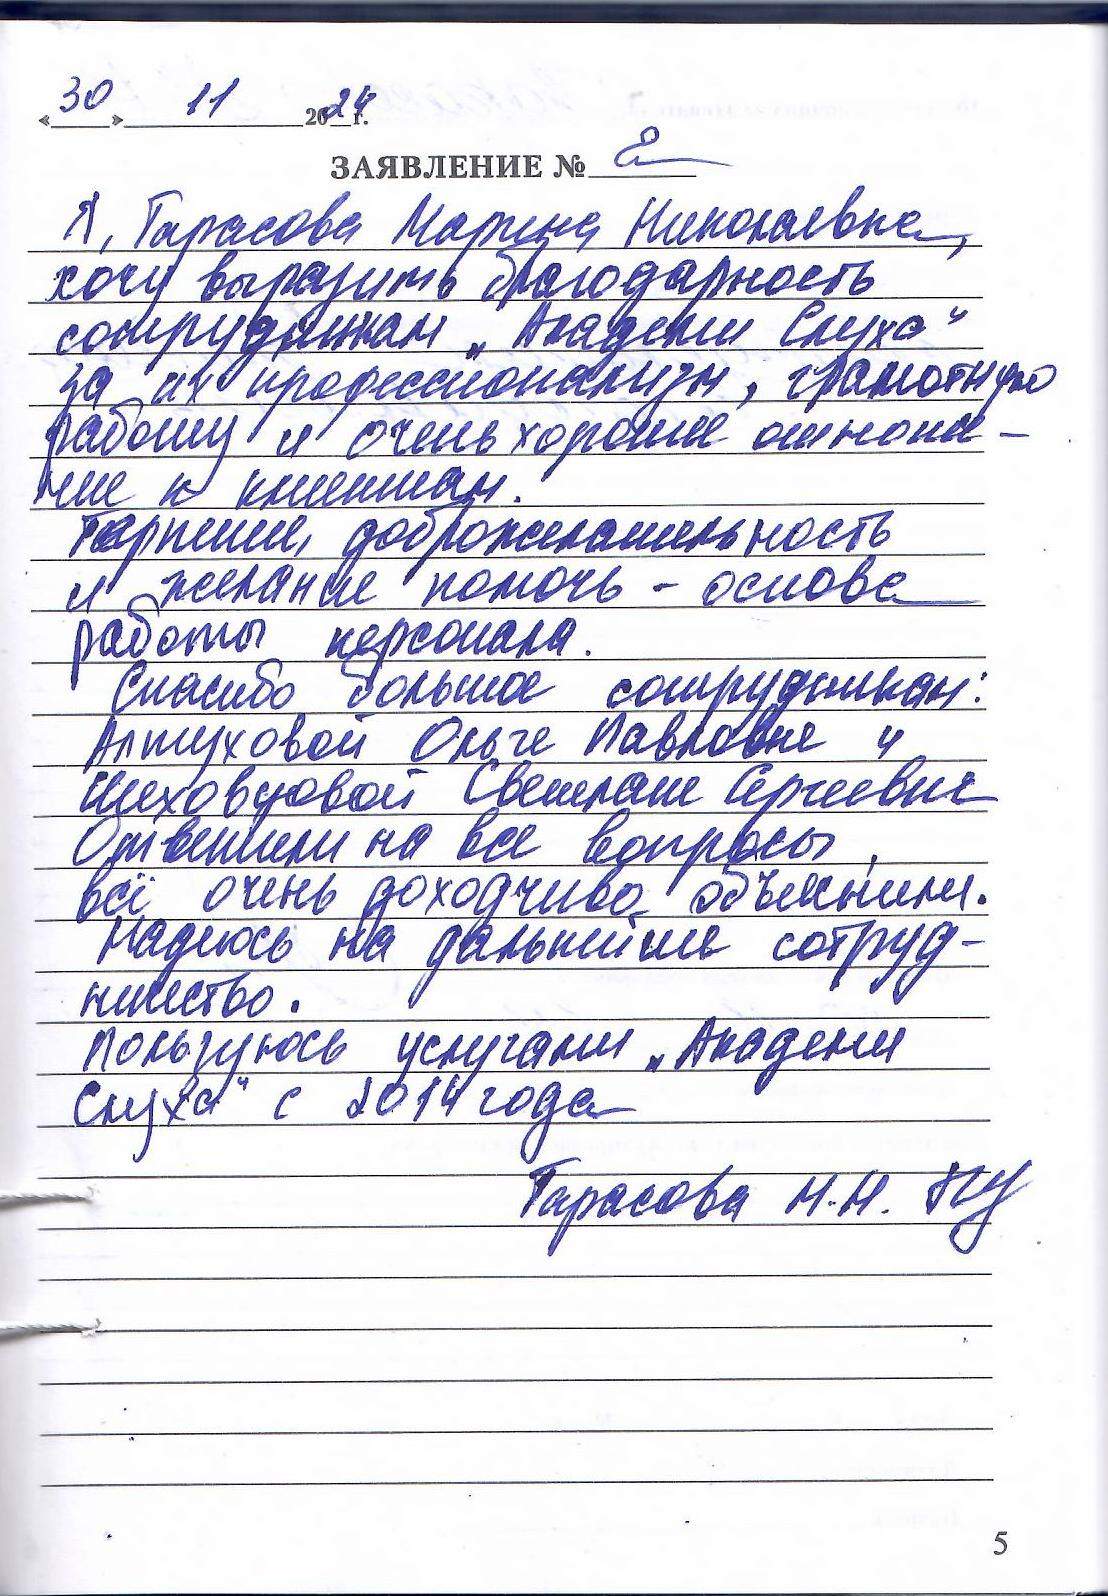 «30» 11 2024г.
ЗАЯВЛЕНИЕ № 2
Я, Тарасова Марина Николаевна,
хочу выразить благодарность
сотрудникам „Академии Слуха"
за их профессионализм, грамотную
работу и очень хорошее отноше-
ние к клиентам.
Терпение, доброжелательность
и желание помочь - основа
работы персонала.
Спасибо большое сотрудникам:
Алтуховой Ольге Павловне и
Шеховцовой Светлане Сергеевне
Ответили на все вопросы,
всё очень доходчиво объяснили.
Надеюсь на дальнейшее сотруд-
ничество.
Пользуюсь услугами „Академии
Слуха" с 2014 года
Тарасова М.Н.
5